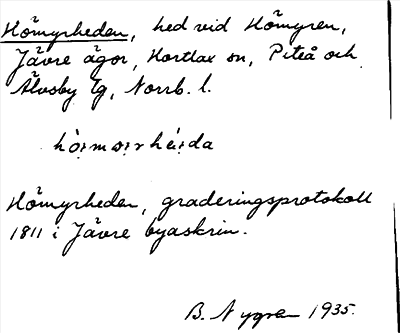 Hömyrheden, hed vid Hömyren,
Jävre ägor, Hortlax sn, Piteå och
Älvsby tg, Norrb. l.
hö:mɔ:rhé:da
Hömyrheden, graderingsprotokoll
1811 i Jävre byaskrin.
B. Nygren 1935.